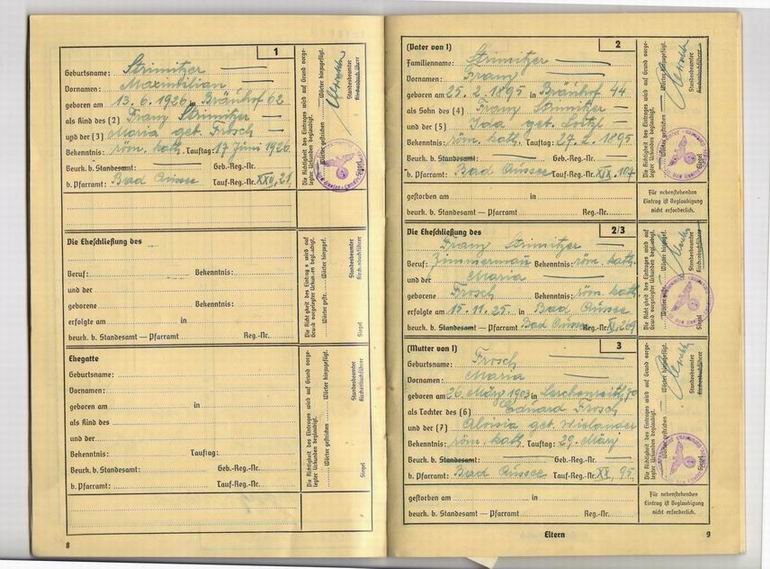 1
Geburtsname: Strimitzer
Vornamen: Maximilian
geboren am 13. 6. 1926 in Bräuhof 62
als Kind des (2) Franz Strimitzer
und der (3) Maria geb. Frosch
Bekenntnis: röm. kath. Tauftag: 17 Juni 1926
Beurk. b. Standesamt: Geb.-Reg.-Nr.
b. Pfarramt: Bad Aussee Tauf-Reg.-Nr. XXII, 21
Die Richtigkeit des Eintrages wird auf Grund vorge-
legter Urkunden beglaubigt.
Wörter hinzugefügt.
Wörter gestrichen
Standesbeamter
Kirchenbuchführer
Siegel
Die Eheschließung des
Beruf: Bekenntnis:
und der
geborene Bekenntnis:
erfolgte am in
beurk. b. Standesamt — Pfarramt Reg.-Nr.
Die Richtigkeit des Eintrages wird auf
Grund vorgelegter Urkunden beglaubigt.
Wörter gestr. Wörter hinzugefügt.
Standesbeamter
Kirchenbuchführer
Siegel
Ehegatte
Geburtsname:
Vornamen:
geboren am in
als Kind des
und der
Bekenntnis: Tauftag:
Beurk. b. Standesamt Geb.-Reg.-Nr.
b. Pfarramt: Tauf-Reg.-Nr.
Die Richtigkeit des Eintrages wird auf Grund vorge-
legter Urkunden beglaubigt.
Wörter gestrichen Wörter hinzugefügt.
Standesbeamter
Kirchenbuchführer
Siegel
8
(Vater von 1) 2
Familienname: Strimitzer
Vornamen: Franz
geboren am 25. 2. 1895 in Bräuhof 44
als Sohn des (4) Franz
und der (5) Ida geb.
Bekenntnis: röm. kath. Tauftag: 27. 2. 1895
Beurk. b. Standesamt: Geb.-Reg.-Nr.
b. Pfarramt: Bad Aussee Tauf-Reg.-Nr. XIX, 107
gestorben am in
beurk. b. Standesamt — Pfarramt Reg.-Nr.
Die Richtigkeit des Eintrages wird auf Grund vorge-
legter Urkunden beglaubigt.
Wörter gestrichen Wörter hinzugefügt.
Standesbeamter
Kirchenbuchführer
Siegel
Für nebenstehenden
Eintrag ist Beglaubigung
nicht erforderlich.
Die Eheschließung des 2/3
Franz Strimitzer
Beruf: Zimmermann Bekenntnis: röm. kath.
und der Maria
geborene Frosch Bekenntnis: röm. kath.
erfolgte am 15. 11. 25. in Bad Aussee
beurk. b. Standesamt — Pfarramt Bad Aussee Reg.-Nr.
Die Richtigkeit des Eintrages wird auf
Grund vorgelegter Urkunden beglaubigt.
Wörter hinzugefügt.
Standesbeamter
Kirchenbuchführer
Siegel
(Mutter von 1) 3
Geburtsname: Frosch
Vornamen: Maria
geboren am 26. März 1903 in
als Tochter des (6) Eduard Frosch
und der (7) Aloisia geb. Wielander
Bekenntnis: röm. kath. Tauftag: 29. März
Beurk. b. Standesamt: Geb.-Reg.-Nr.
b. Pfarramt: Bad Aussee Tauf-Reg.-Nr. XX, 95
gestorben am in
beurk. b. Standesamt — Pfarramt Reg.-Nr.
Die Richtigkeit des Eintrages wird auf Grund vorge-
legter Urkunden beglaubigt.
Wörter gestrichen Wörter hinzugefügt.
Standesbeamter
Kirchenbuchführer
Siegel
Für nebenstehenden
Eintrag ist Beglaubigung
nicht erforderlich.
Eltern
9